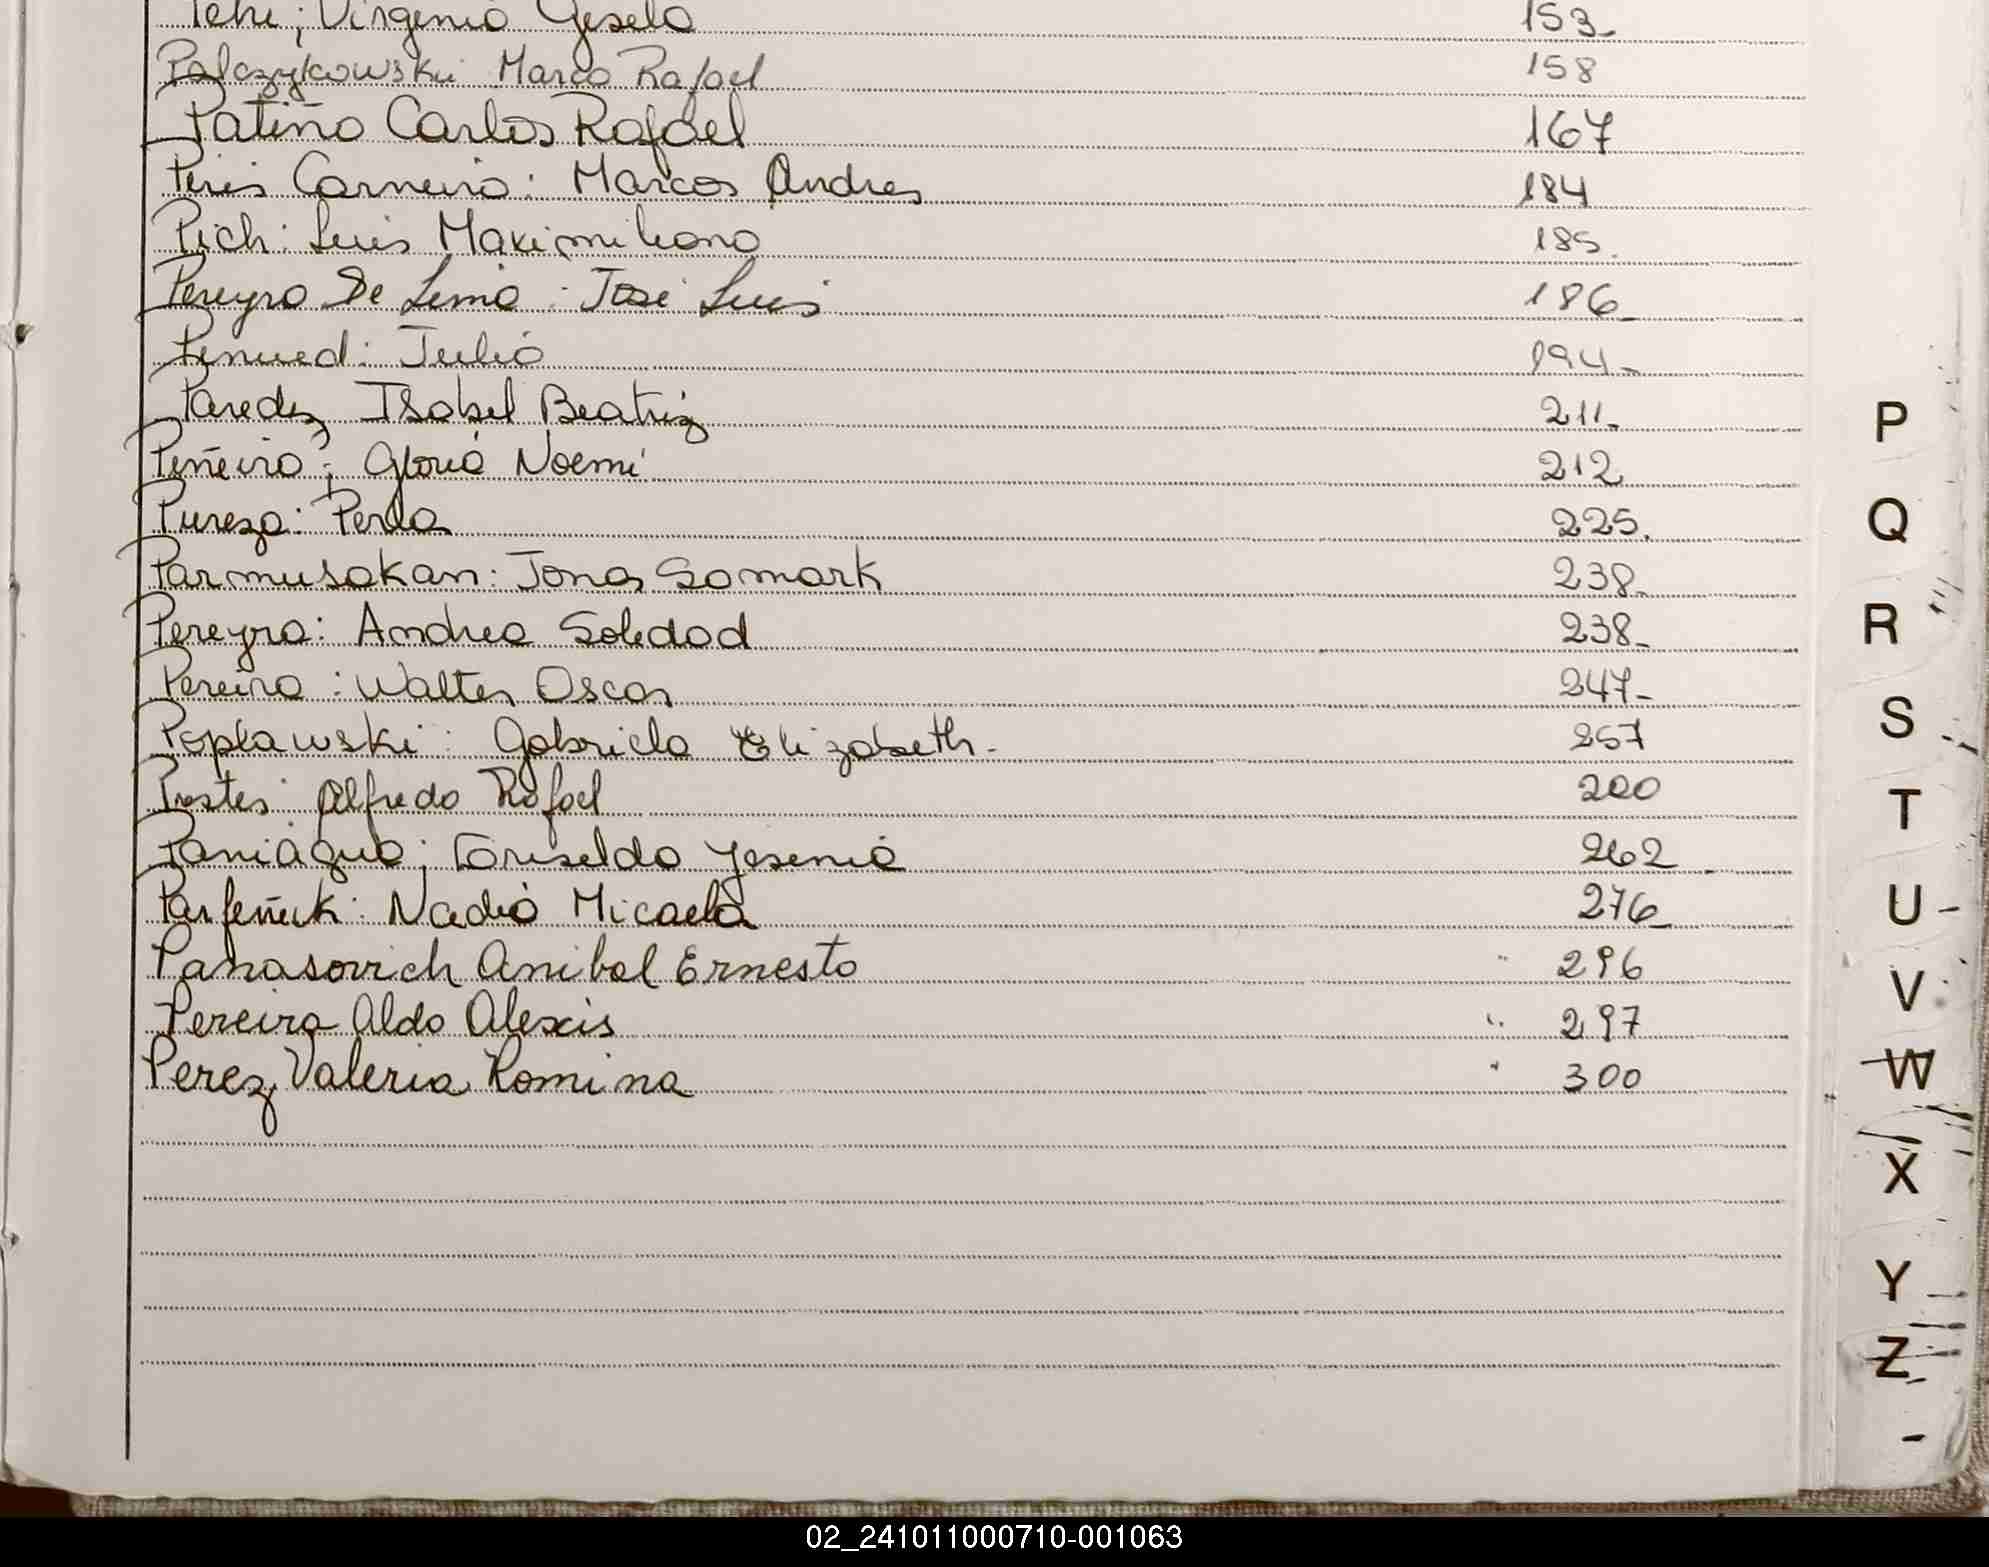 Virgenia Yesela 153-
Palczykowski Marco Rafael 158
Patiño Carlos Rafael 167
Peris Carneiro: Marcos Andres 184
Pich: Luis Maximiliano 185.
Pereyra De Lima: José Luis 186-
Julio 194-
Paredez Isabel Beatriz 211-
Piñeiro; Gloria Noemí 212
Pureza: Perla 225.
Parmusakan: Jonas Gomark 238-
Pereyra: Andrea Soledad 238-
Pereira: Walter Oscar 247-
Poplawski: Gabriela Elizabeth- 257
Prestes Alfredo Rafael 200
Paniagua; Griselda Yesenia 262
Parfeñuk: Nadia Micaela 276-
Panasovich Anibal Ernesto " 296
Pereira Aldo Alexis " 297
Perez, Valeria Romina " 300
P
Q
R
S
T
U
V
W
X
Y
Z
02_241011000710-001063